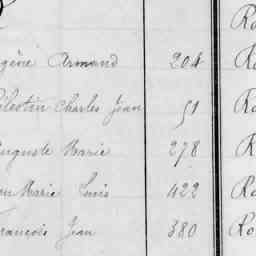 Ro
gène Armand 204 Ro
élestin Charles Jean 51 Ro
uguste Marie 278 R
Marie Louis 422 Ro
rançois Jean 380 Ro